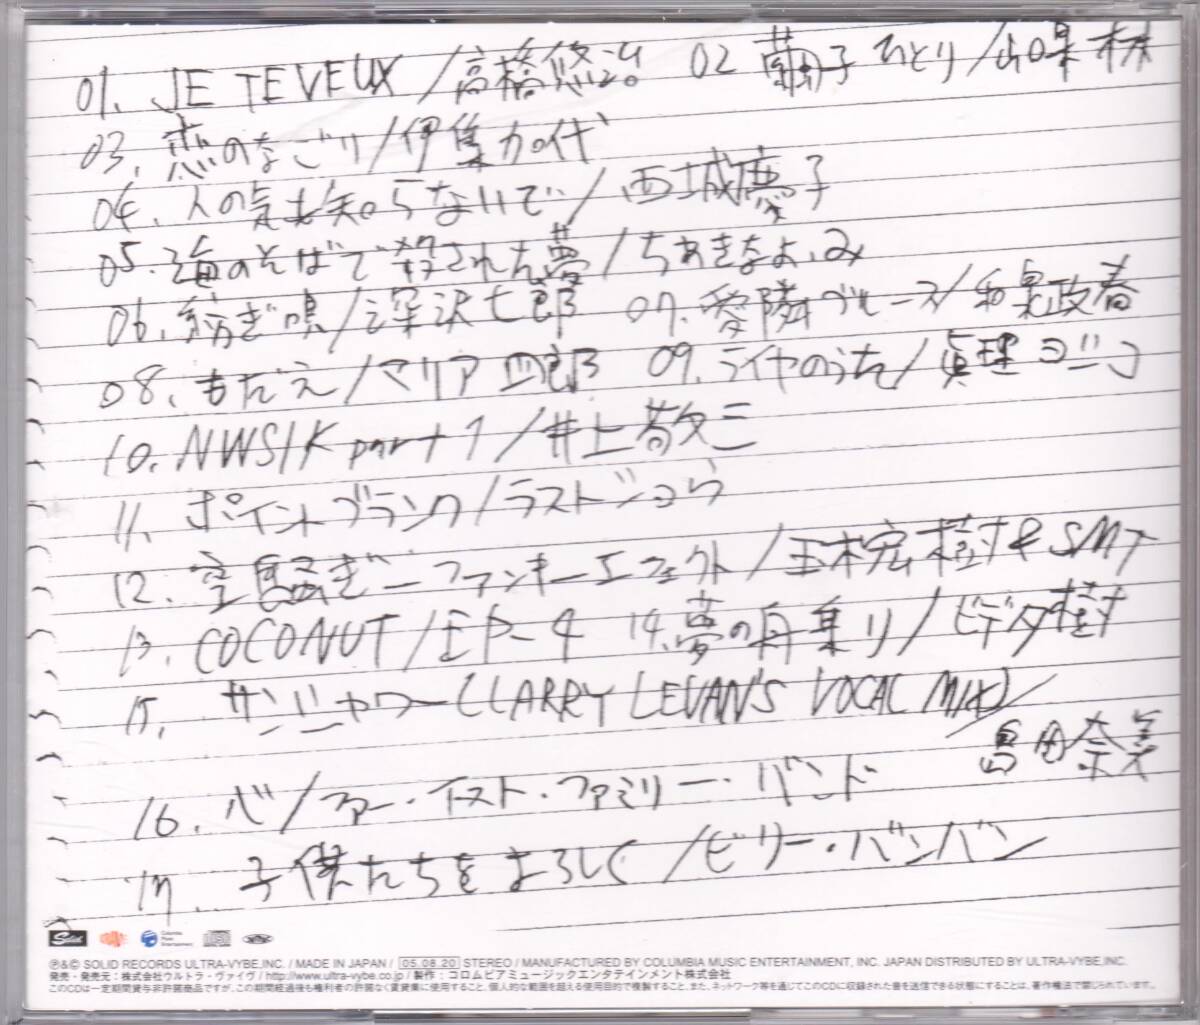 01. JE TE VEUX / 高橋悠治 02 繭子ひとり / 山口果林
03. 恋のなごり / 伊集加代
04. 人の気も知らないで / 西城慶子
05. 海のそばで殺された夢 / ちあきなおみ
06. 紡ぎ唄 / 深沢七郎 07. 愛隣ブルース / 和泉政春
08. もだえ / マリア四郎 09. ライヤのうた / 眞理ヨシコ
10. NWSIK part 1 / 井上敬三
11. ポイントブランク / ラストショウ
12. 空騒ぎーファンキーエフェクト / 玉木宏樹 & SMT
13. COCONUT / EP-4 14. 夢の舟乗り / ビデタ樹
15. サンシャワー (LARRY LEVAN'S VOCAL MIX) /
島田奈美
16. 心 / ファー・イースト・ファミリー・バンド
17. 子供たちをよろしく / ビリー・バンバン
Solid Columbia Music Entertainment
℗&© SOLID RECORDS ULTRA-VYBE,INC. / MADE IN JAPAN / 05.08.20 STEREO / MANUFACTURED BY COLUMBIA MUSIC ENTERTAINMENT, INC. JAPAN DISTRIBUTED BY ULTRA-VYBE,INC.
発売・発売元：株式会社ウルトラ・ヴァイヴ / http://www.ultra-vybe.co.jp / 製作：コロムビアミュージックエンタテインメント株式会社
このCDは一定期間貸与非許諾商品ですが、この期間経過後も権利者の許諾なく賃貸業に使用すること、個人的な範囲を超える使用目的で複製すること、また、ネットワーク等を通じてこのCDに収録された音を送信できる状態にすることは、著作権法で禁じられています。